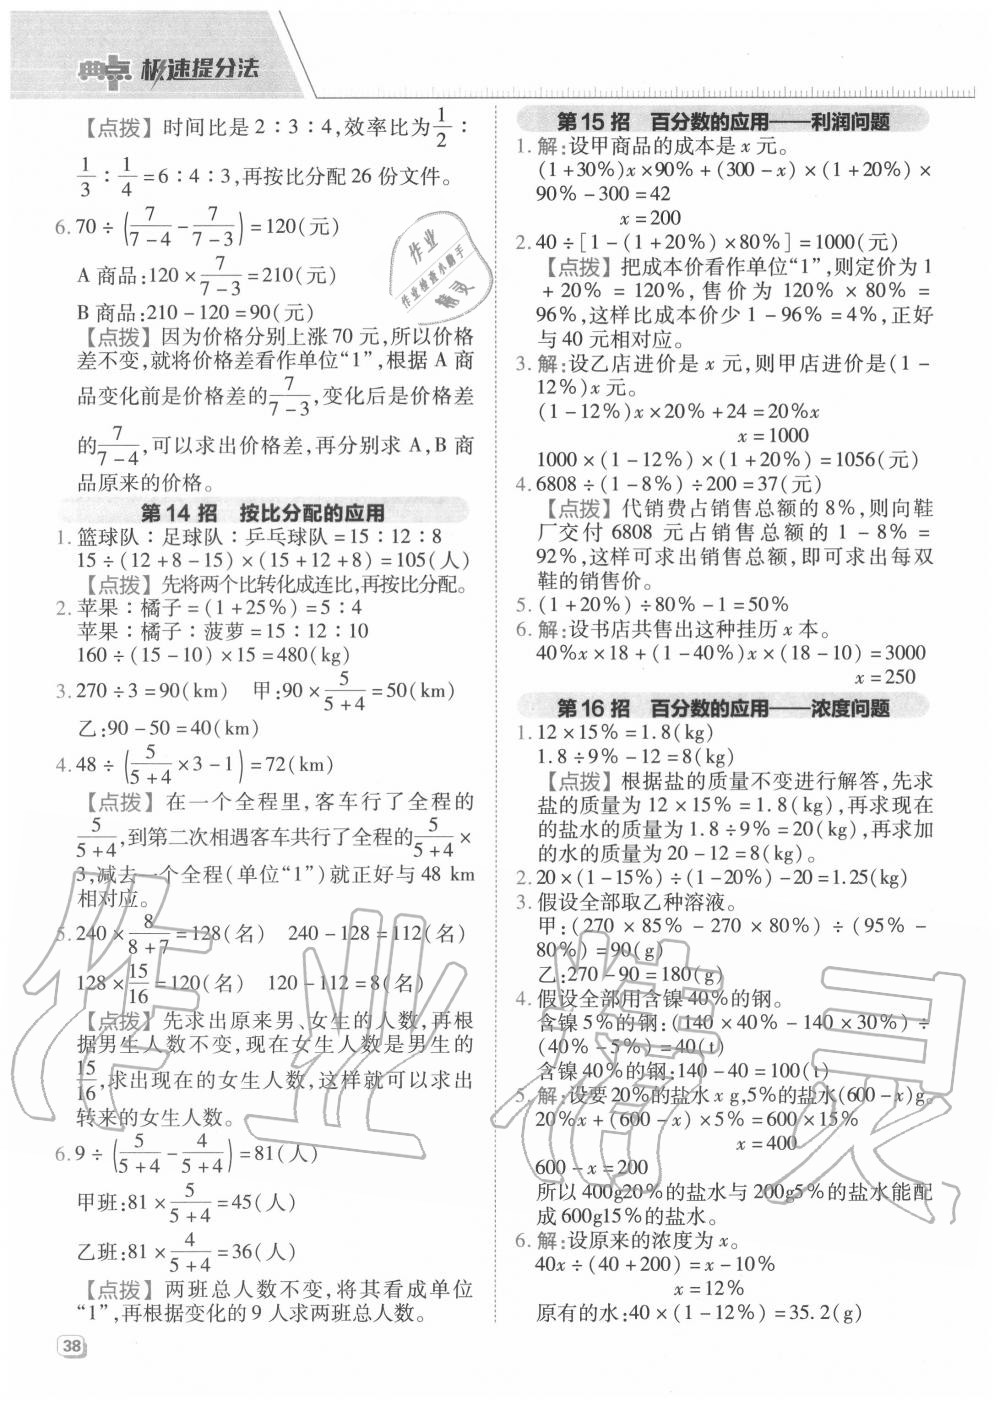 典点 极速提分法
【点拨】时间比是2∶3∶4,效率比为1/2∶
1/3∶1/4=6∶4∶3,再按比分配26份文件。
6. 70÷(7/(7-4)-7/(7-3))=120(元)
A商品:120×7/(7-3)=210(元)
B商品:210-120=90(元)
【点拨】因为价格分别上涨70元,所以价格
差不变,就将价格差看作单位“1”,根据A商
品变化前是价格差的7/(7-3),变化后是价格差
的7/(7-4),可以求出价格差,再分别求A,B商
品原来的价格。
第14招 按比分配的应用
1. 篮球队∶足球队∶乒乓球队=15∶12∶8
15÷(12+8-15)×(15+12+8)=105(人)
【点拨】先将两个比转化成连比,再按比分配。
2. 苹果∶橘子=(1+25%)=5∶4
苹果∶橘子∶菠萝=15∶12∶10
160÷(15-10)×15=480(kg)
3. 270÷3=90(km) 甲:90×5/(5+4)=50(km)
乙:90-50=40(km)
4. 48÷(5/(5+4)×3-1)=72(km)
【点拨】在一个全程里,客车行了全程的
5/(5+4),到第二次相遇客车共行了全程的5/(5+4)×
3,减去一个全程(单位“1”)就正好与48 km
相对应。
5. 240×8/(8+7)=128(名) 240-128=112(名)
128×15/16=120(名) 120-112=8(名)
【点拨】先求出原来男、女生的人数,再根
据男生人数不变,现在女生人数是男生的
15/16,求出现在的女生人数,这样就可以求出
转来的女生人数。
6. 9÷(5/(5+4)-4/(5+4))=81(人)
甲班:81×5/(5+4)=45(人)
乙班:81×4/(5+4)=36(人)
【点拨】两班总人数不变,将其看成单位
“1”,再根据变化的9人求两班总人数。
38
第15招 百分数的应用——利润问题
1. 解:设甲商品的成本是x元。
(1+30%)x×90%+(300-x)×(1+20%)×
90%-300=42
x=200
2. 40÷[1-(1+20%)×80%]=1000(元)
【点拨】把成本价看作单位“1”,则定价为1
+20%=120%,售价为120%×80%=
96%,这样比成本价少1-96%=4%,正好
与40元相对应。
3. 解:设乙店进价是x元,则甲店进价是(1-
12%)x元。
(1-12%)x×20%+24=20%x
x=1000
1000×(1-12%)×(1+20%)=1056(元)
4. 6808÷(1-8%)÷200=37(元)
【点拨】代销费占销售总额的8%,则向鞋
厂交付6808元占销售总额的1-8%=
92%,这样可求出销售总额,即可求出每双
鞋的销售价。
5. (1+20%)÷80%-1=50%
6. 解:设书店共售出这种挂历x本。
40%x×18+(1-40%)x×(18-10)=3000
x=250
第16招 百分数的应用——浓度问题
1. 12×15%=1.8(kg)
1.8÷9%-12=8(kg)
【点拨】根据盐的质量不变进行解答,先求
盐的质量为12×15%=1.8(kg),再求现在
的盐水的质量为1.8÷9%=20(kg),再求加
的水的质量为20-12=8(kg)。
2. 20×(1-15%)÷(1-20%)-20=1.25(kg)
3. 假设全部取乙种溶液。
甲:(270×85%-270×80%)÷(95%-
80%)=90(g)
乙:270-90=180(g)
4. 假设全部用含镍40%的钢。
含镍5%的钢:(140×40%-140×30%)÷
(40%-5%)=40(t)
含镍40%的钢:140-40=100(t)
5. 解:设要20%的盐水x g,5%的盐水(600-x)g。
20%x+(600-x)×5%=600×15%
x=400
600-x=200
所以400g20%的盐水与200g5%的盐水能配
成600g15%的盐水。
6. 解:设原来的浓度为x。
40x÷(40+200)=x-10%
x=12%
原有的水:40×(1-12%)=35.2(g)
作业
作业检查小助手
精灵
作业精灵